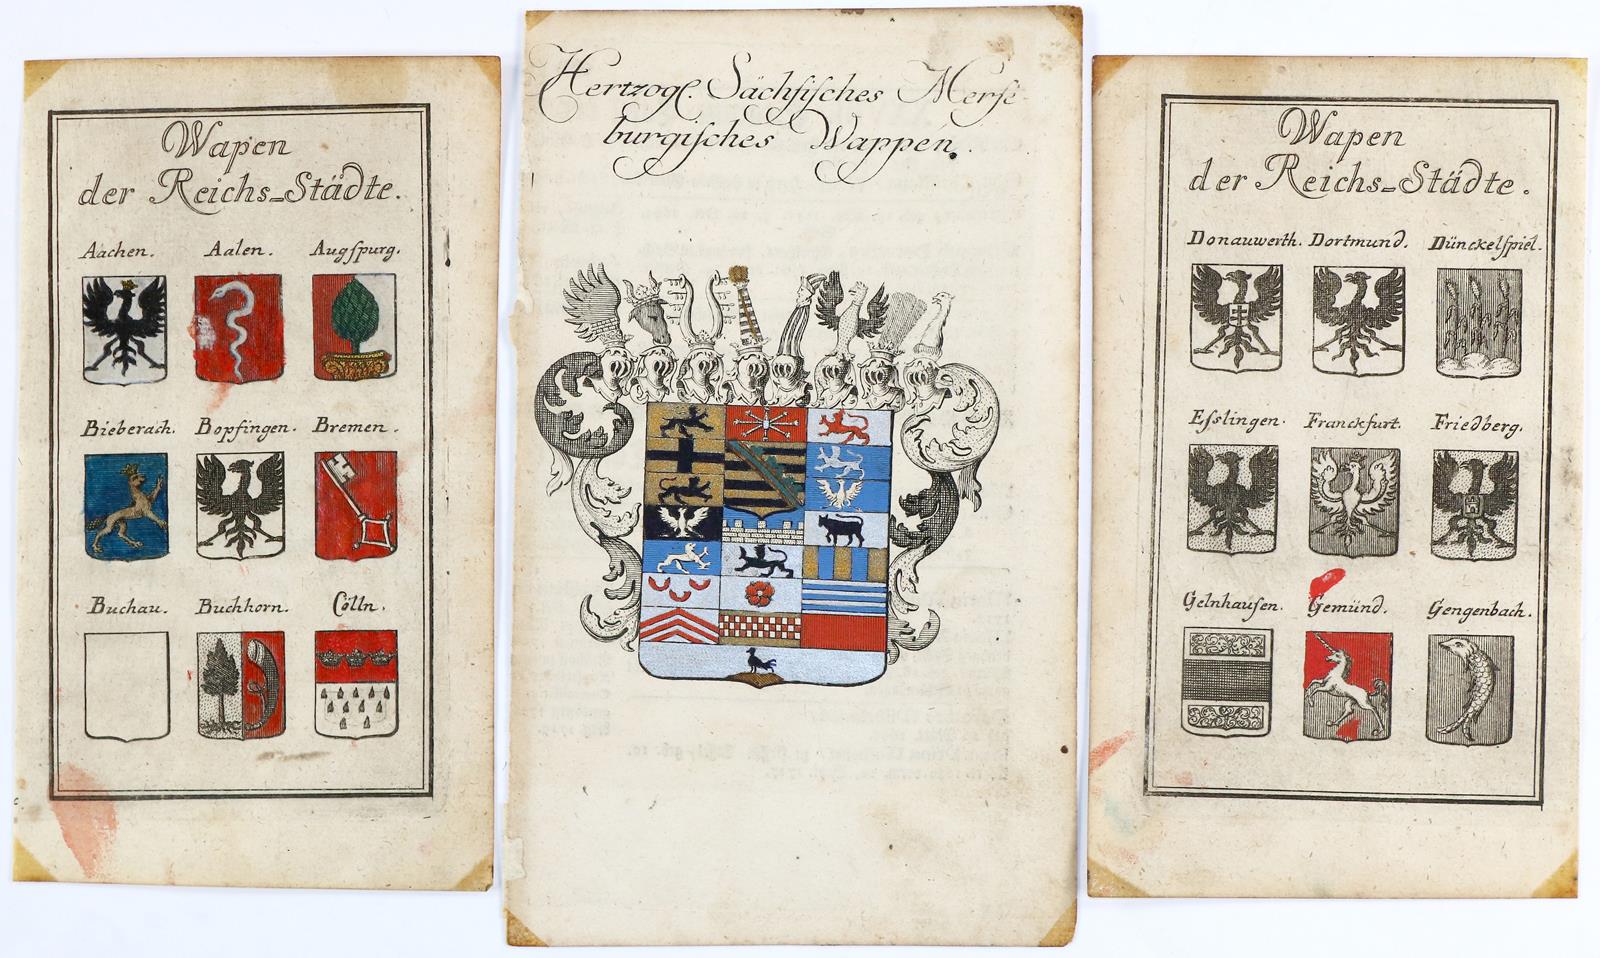 Wapen
der Reichs-Städte.
Aachen. Aalen. Augspurg.
Bieberach. Bopfingen. Bremen.
Buchau. Buchhorn. Cölln.
Hertzogl. Sächsisches Merse-
burgisches Wappen.
Wapen
der Reichs-Städte.
Donauwerth. Dortmund. Dünckelspiel.
Esslingen. Franckfurt. Friedberg.
Gelnhausen. Gemünd. Gengenbach.